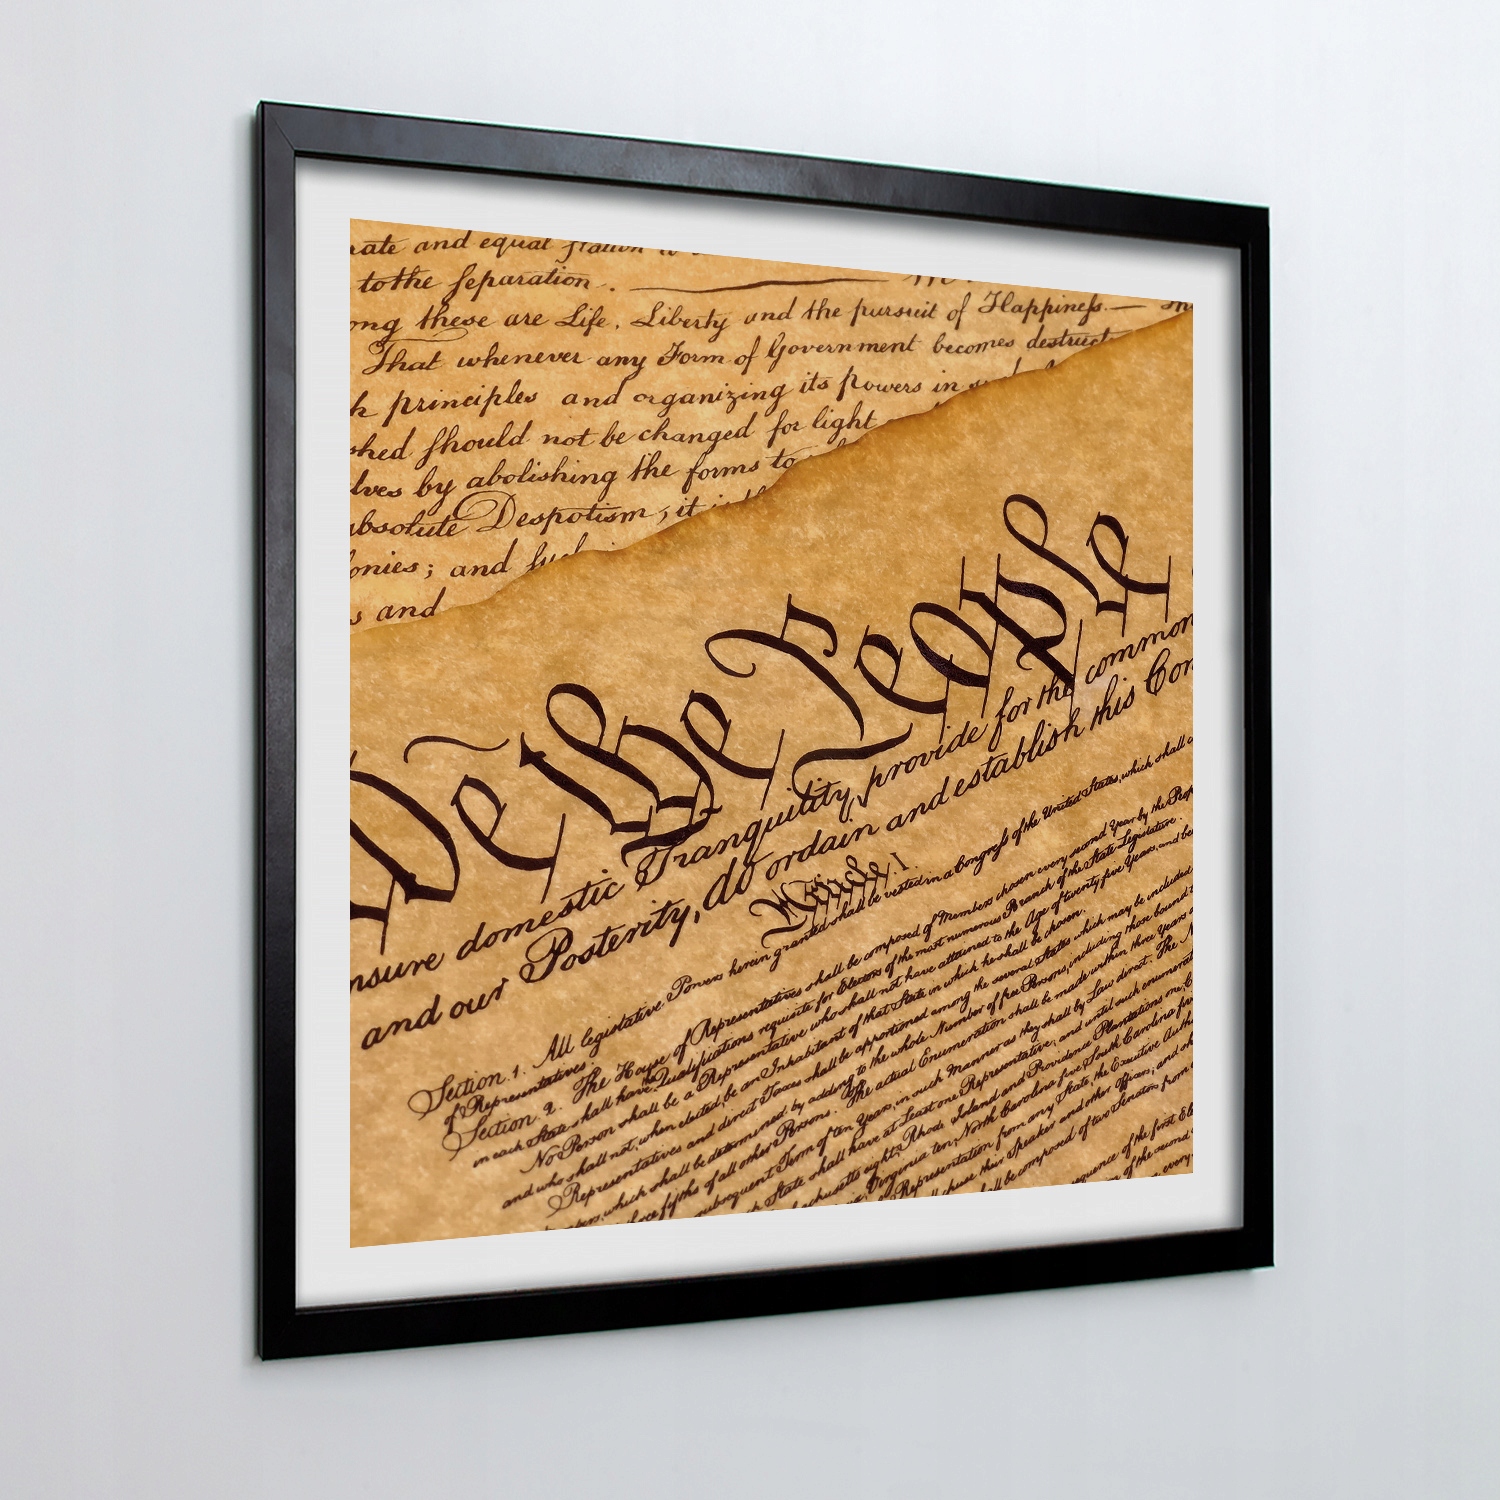 rate and equal station
to the separation.
ong these are Life, Liberty and the pursuit of Happiness.—
That whenever any Form of Government becomes destruct
principles and organizing its powers in
shed should not be changed for light
lves by abolishing the forms to
absolute Despotism; it is
onies; and such
s and
We the People
nsure domestic Tranquility, provide for the common
and our Posterity, do ordain and establish this Con
Article. I.
Section. 1. All legislative Powers herein granted shall be vested in a Congress of the United States, which shall
of Representatives.
Section. 2. The House of Representatives shall be composed of Members chosen every second Year by the Peop
in each State shall have the Qualifications requisite for Electors of the most numerous Branch of the State Legislature.
No Person shall be a Representative who shall not have attained to the Age of twenty five Years, and be
and who shall not, when elected, be an Inhabitant of that State in which he shall be chosen.
Representatives and direct Taxes shall be apportioned among the several States which may be included
bers, which shall be determined by adding to the whole Number of free Persons, including those bound t
hree fifths of all other Persons. The actual Enumeration shall be made within three Years a
subsequent Term of ten Years, in such Manner as they shall by Law direct. The N
State shall have at Least one Representative; and until such enumerat
achusetts eight, Rhode Island and Providence Plantations one, C
Virginia ten, North Carolina five, South Carolina five
Representation from any State, the Executive Autho
chuse their Speaker and other Officers; and
all be composed of two Senators from
equence of the first El
of the second
every